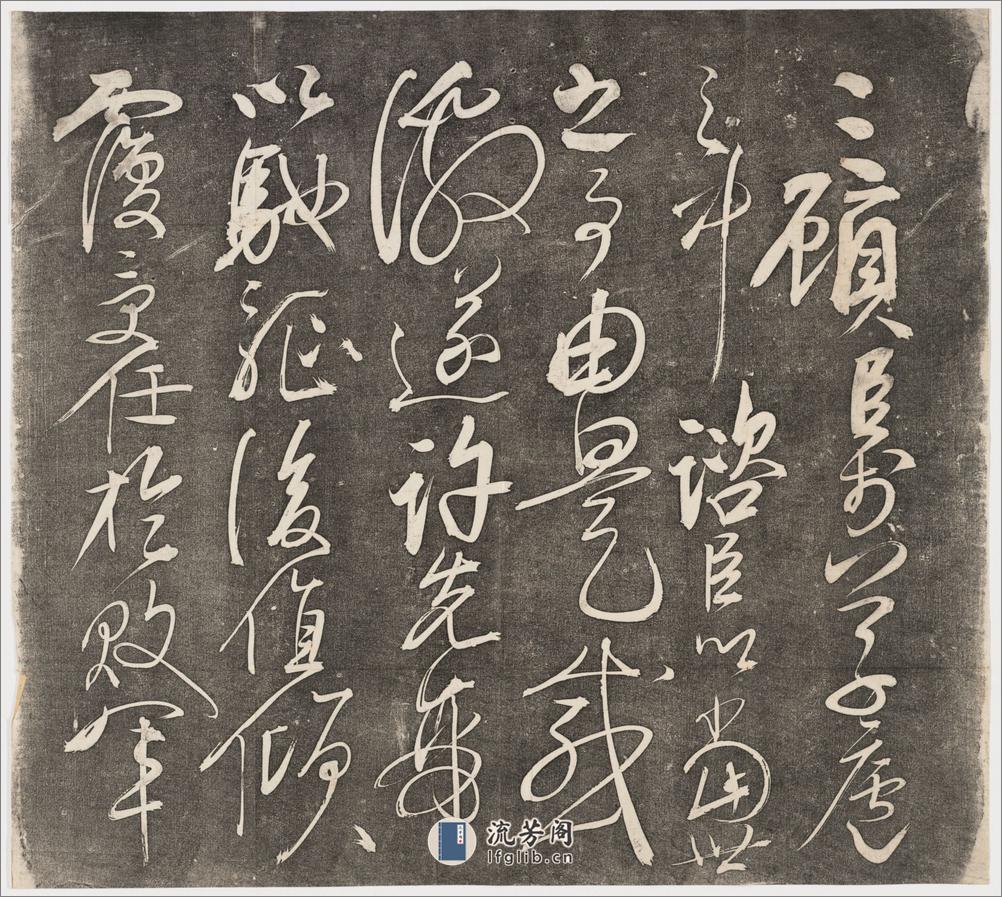 三顧臣於草廬
之中諮臣以當世
之事由是感
激遂許先帝
以驅馳後值傾
覆受任於敗軍
流芳阁
lfglib.cn